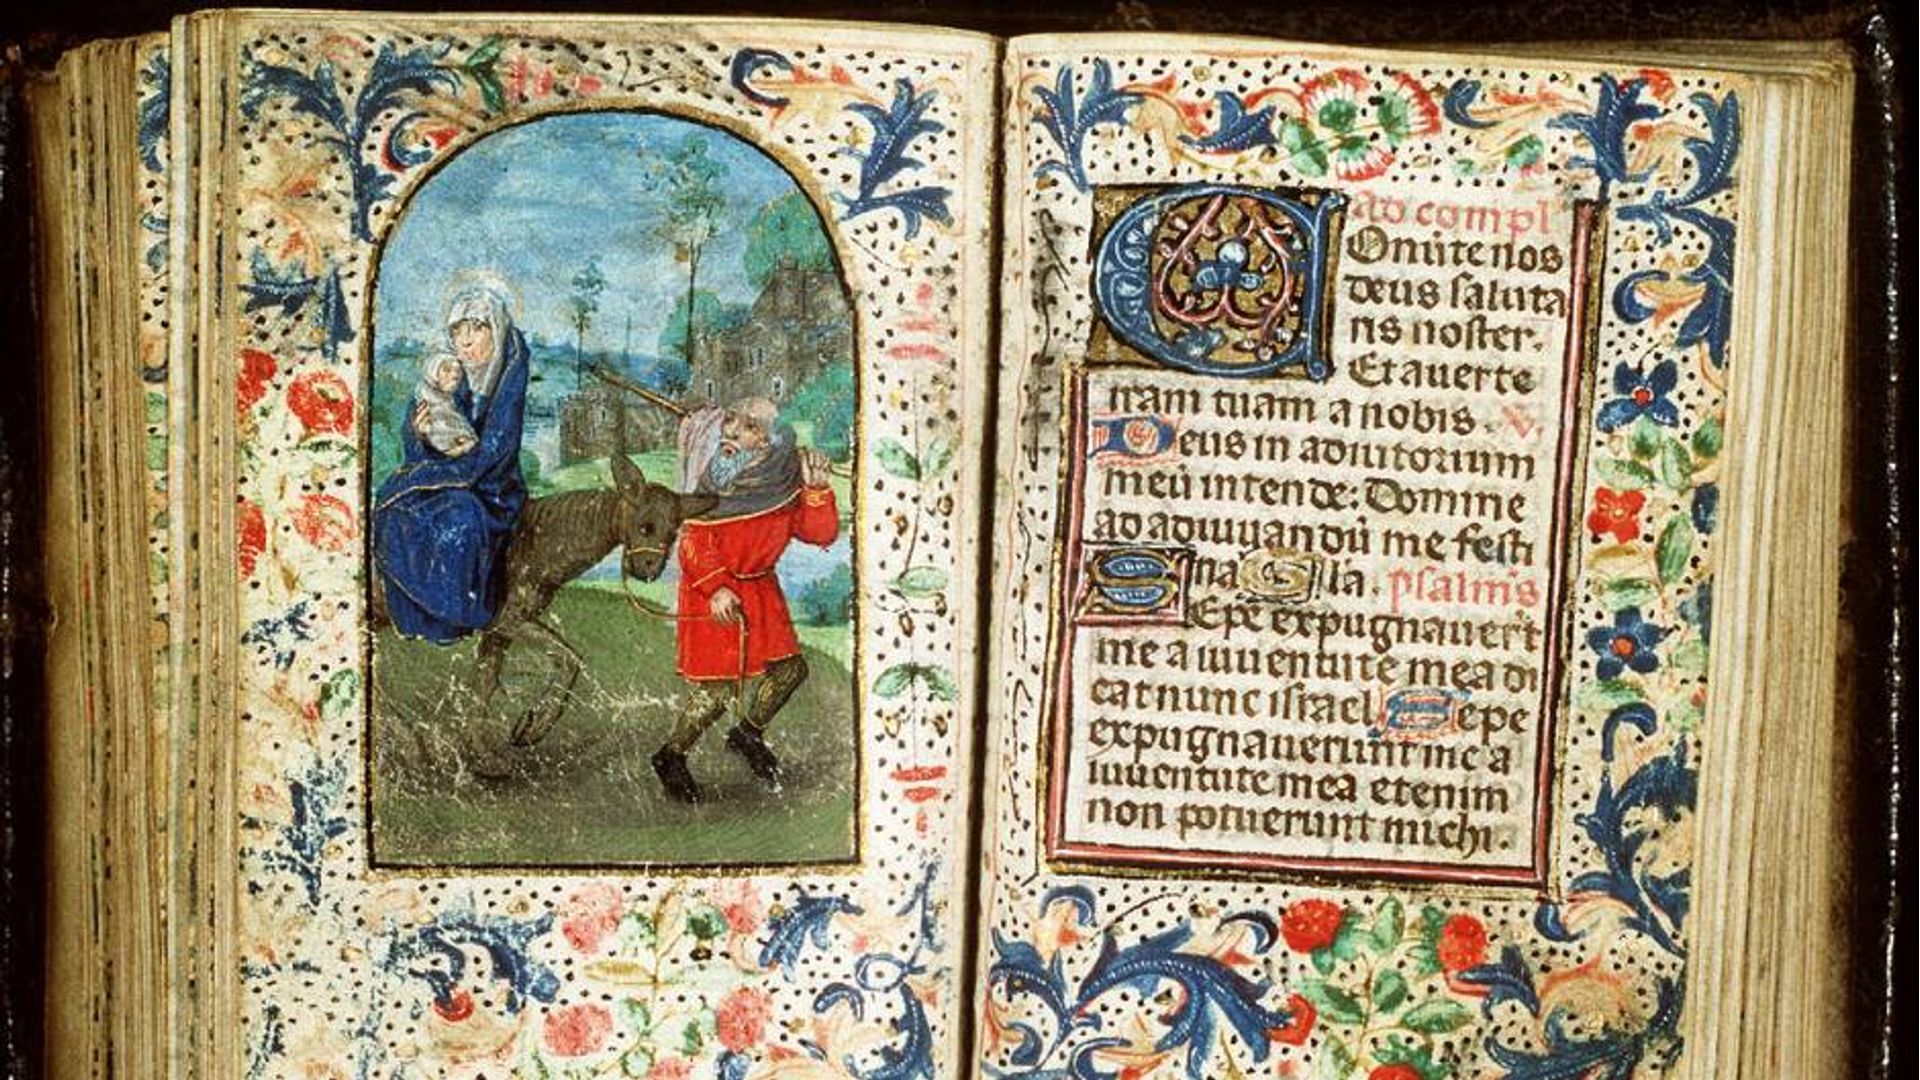 ad compl'
Conu̅te nos
deus saluta
ris noster.
Et auerte
iram tuam a nobis. V.
Deus in adiutorium
meu̅ intende: Domine
ad adiuuandu̅ me festi
na Gl'ia. psalmꝰ
Sepe expugnauer̅t
me a iuuentute mea di
cat nunc israel Sepe
expugnauerunt me a
iuuentute mea etenim
non potuerunt michi.